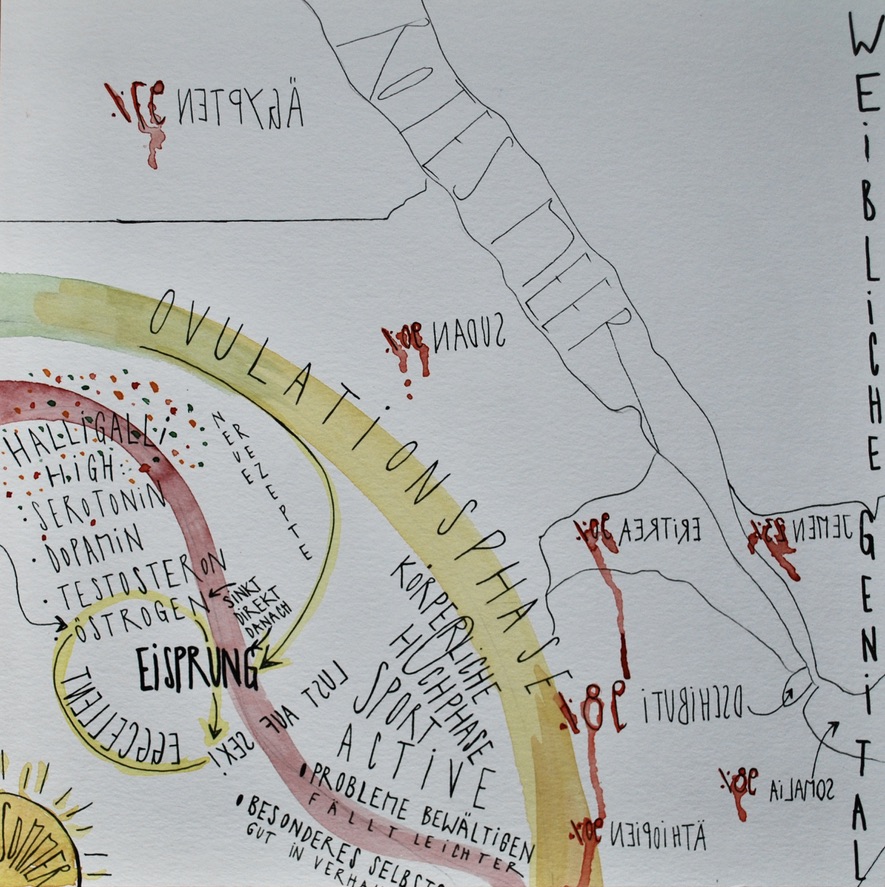 ÄGYPTEN
ROTES MEER
SUDAN 90%
ERITREA 90%
JEMEN 23%
DSCHIBUTI 98%
SOMALIA 98%
ÄTHIOPIEN 90%
WEIBLICHE GENITAL
OVULATIONSPHASE
HALLIGALLI
HIGH:
· SEROTONIN
· DOPAMIN
· TESTOSTERON
· ÖSTROGEN
SINKT
DIREKT
DANACH
NEUE
REZEPTE
EISPRUNG
EGGCELLENT
LUST AUF SEX!
KÖRPERLICHE
HOCHPHASE
SPORT
ACTIVE
• PROBLEME BEWÄLTIGEN
FÄLLT LEICHTER
• BESONDERES SELBST
GUT IN VERHA
SOMMER